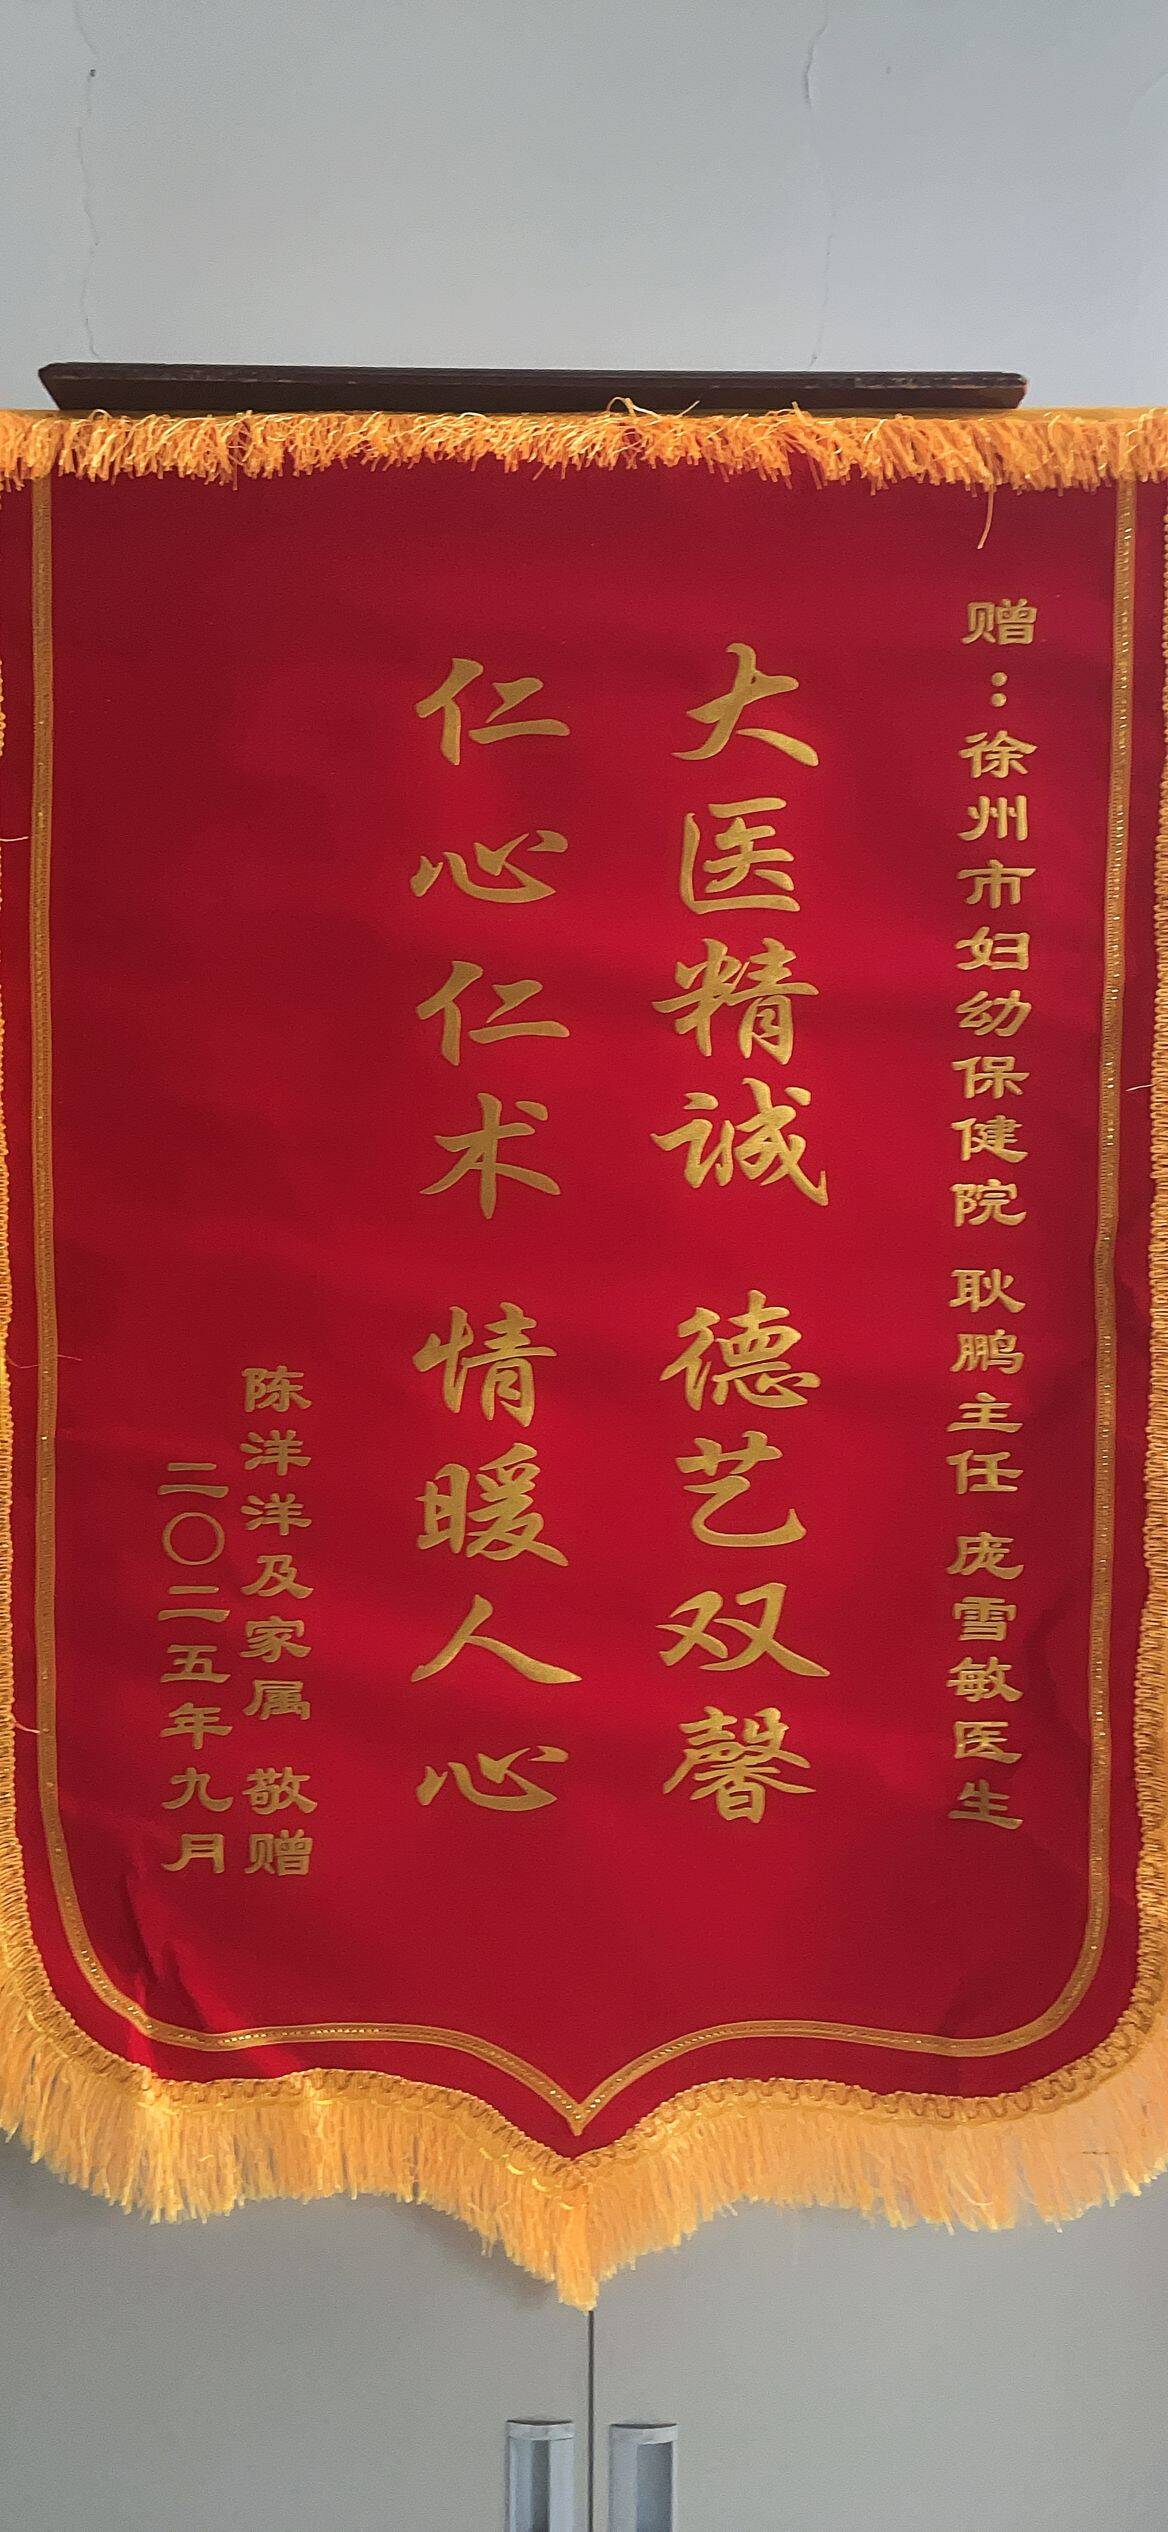 赠：徐州市妇幼保健院 耿鹏主任 庞雪敏医生
大医精诚 德艺双馨
仁心仁术 情暖人心
陈洋洋及家属 敬赠
二〇二五年九月